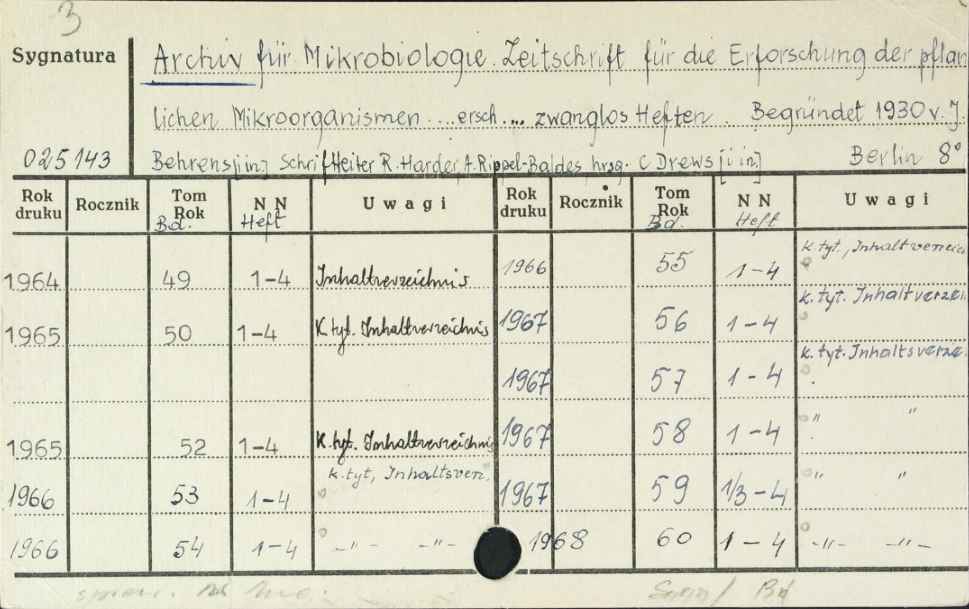 3
Sygnatura
Archiv für Mikrobiologie. Zeitschrift für die Erforschung der pflan
lichen Mikroorganismen ...ersch.... zwanglos Heften. Begründet 1930 v. J.
025143 Behrens [i in] Schriftleiter R. Harder, A. Rippel-Baldes hrsg. C Drews [i in] Berlin 8°
Rok druku Rocznik Tom Rok Bd. N N Heft Uwagi Rok druku Rocznik Tom Rok Bd. N N Heft Uwagi
1964 49 1-4 Inhaltverzeichnis 1966 55 1-4 k. tyt., Inhaltverzeich
1965 50 1-4 K. tyt. Inhaltverzeichnis 1967 56 1-4 k. tyt. Inhaltverzei
1967 57 1-4 k. tyt. Inhaltsverze
1965 52 1-4 K. tyt. Inhaltverzeichnis 1967 58 1-4 " "
1966 53 1-4 k. tyt, Inhaltsverz. 1967 59 1/3-4 " "
1966 54 1-4 -"- -"- 1968 60 1-4 -"- -"-